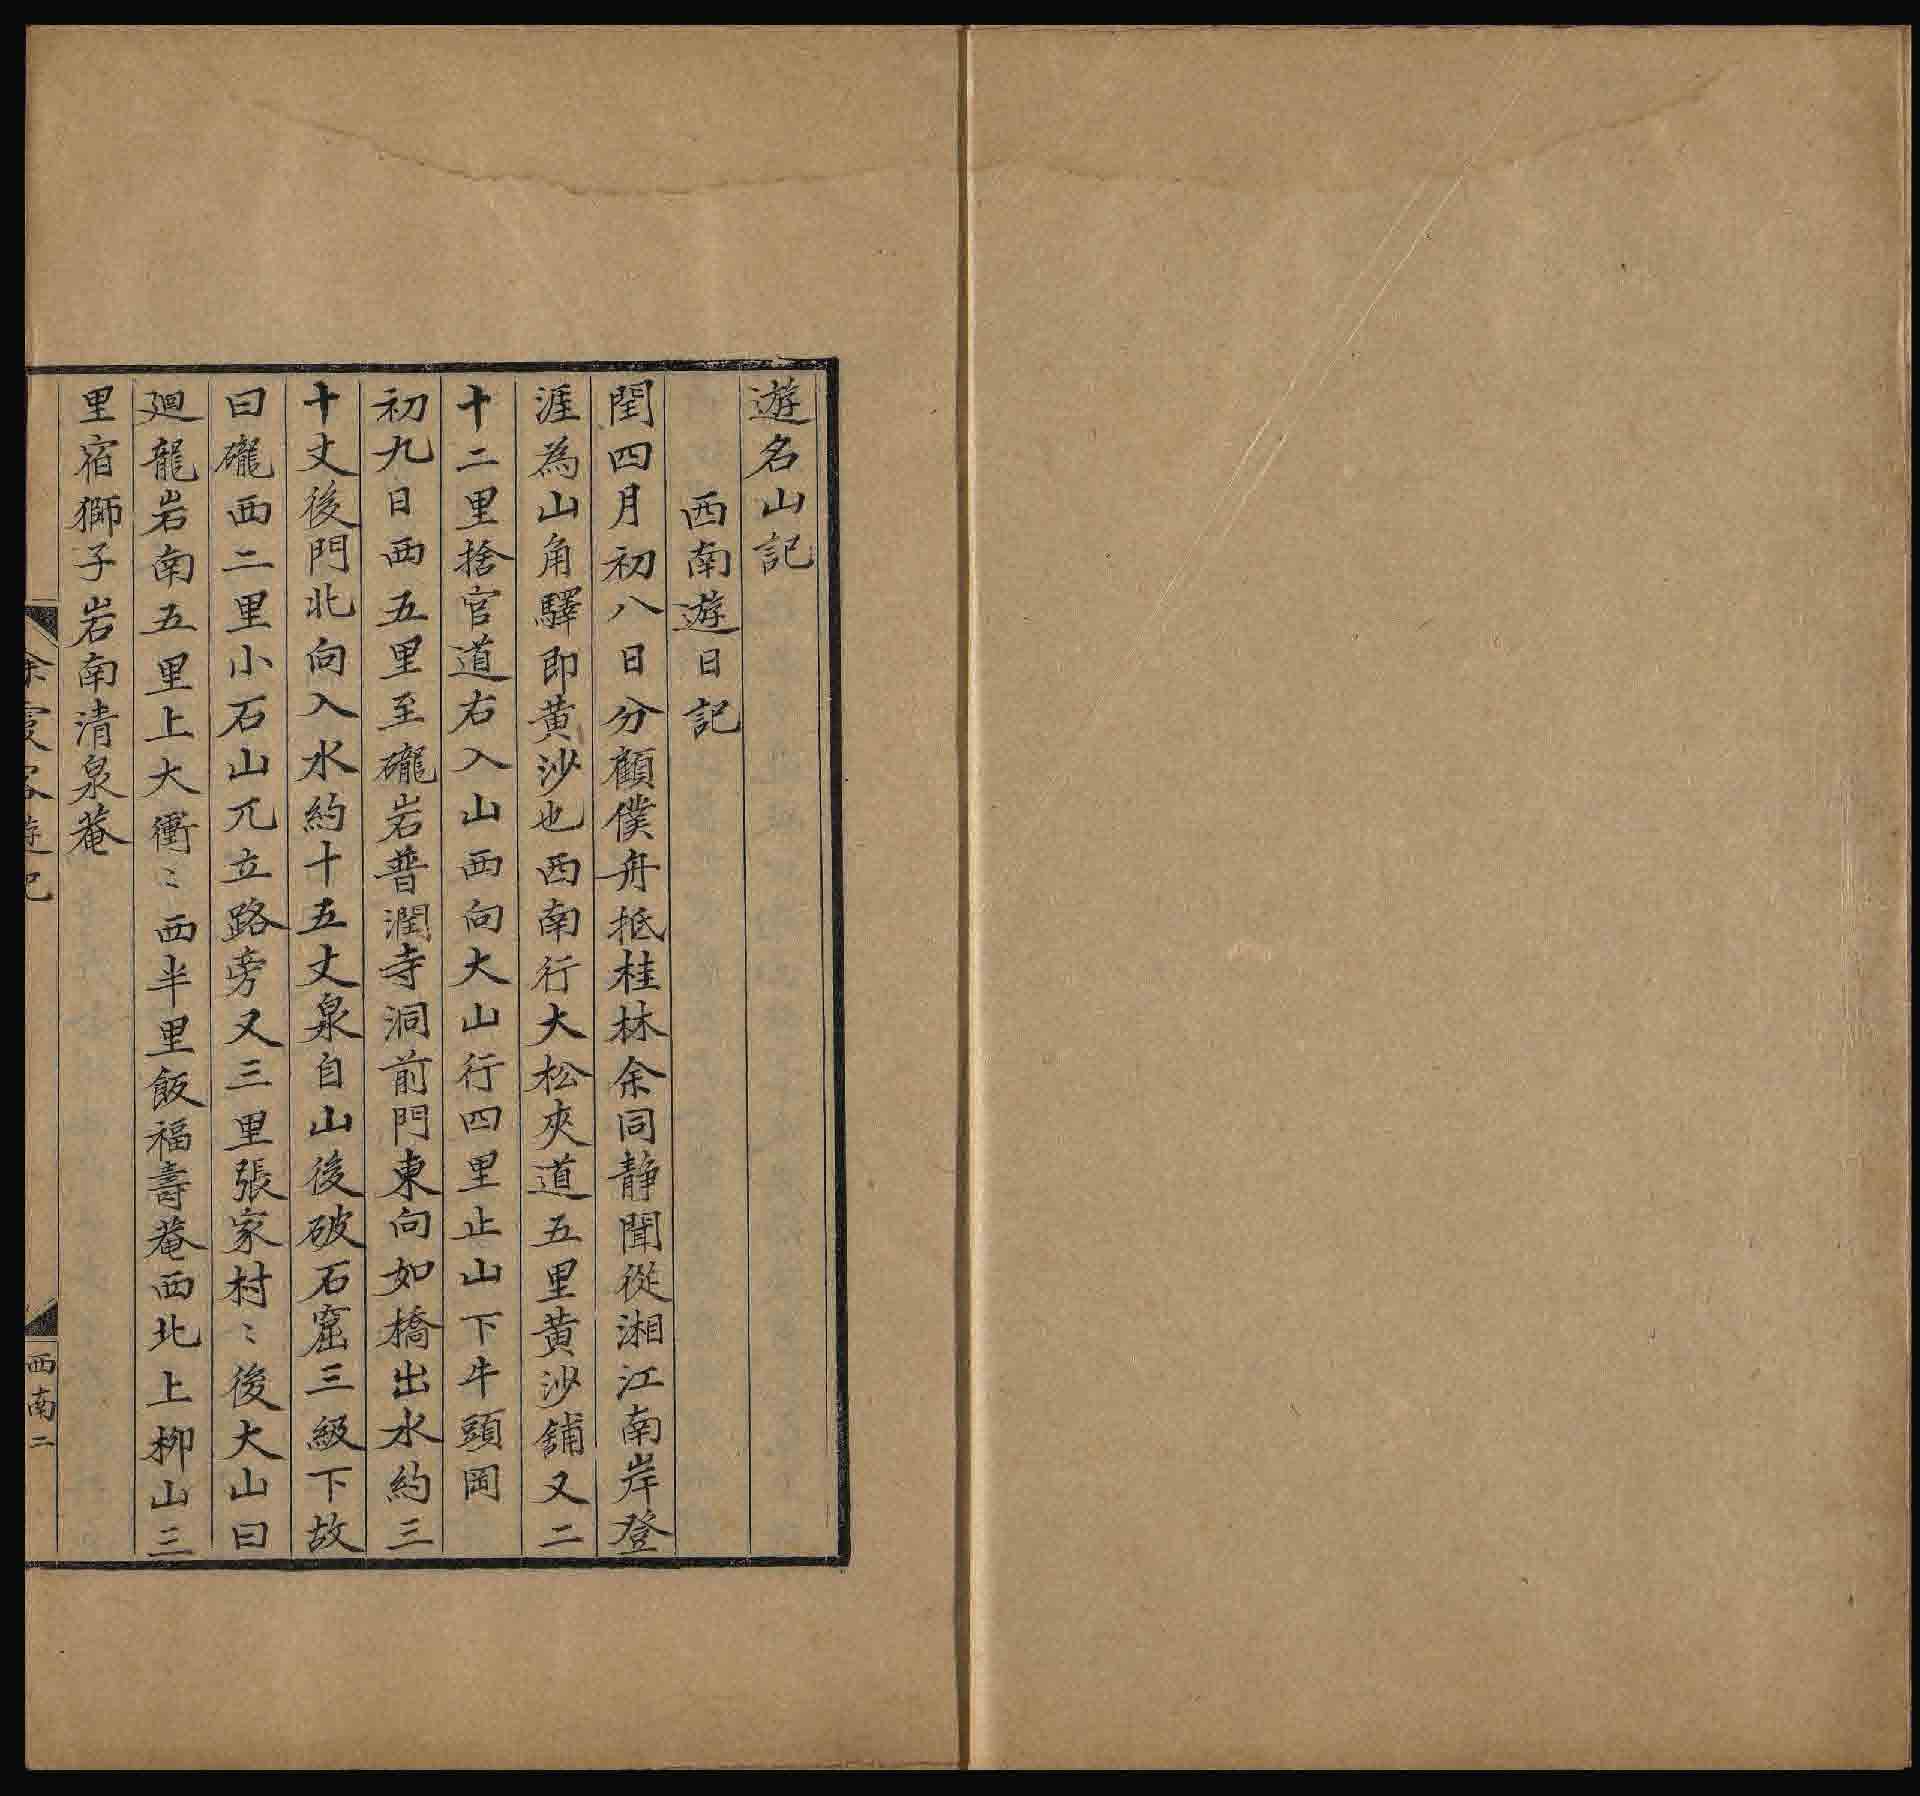 遊名山記
西南遊日記
閏四月初八日分顧僕舟抵桂林余同静聞從湘江南岸登
涯為山角驛即黄沙也西南行大松夾道五里黄沙鋪又二
十二里捨官道右入山西向大山行四里止山下牛頭岡
初九日西五里至礲岩普潤寺洞前門東向如橋出水約三
十丈後門北向入水約十五丈泉自山後破石窟三級下故
曰礲西二里小石山兀立路旁又三里張家村〻後大山曰
廻龍岩南五里上大衝〻西半里飯福壽菴西北上柳山三
里宿獅子岩南清泉菴
徐霞客遊記
西南二